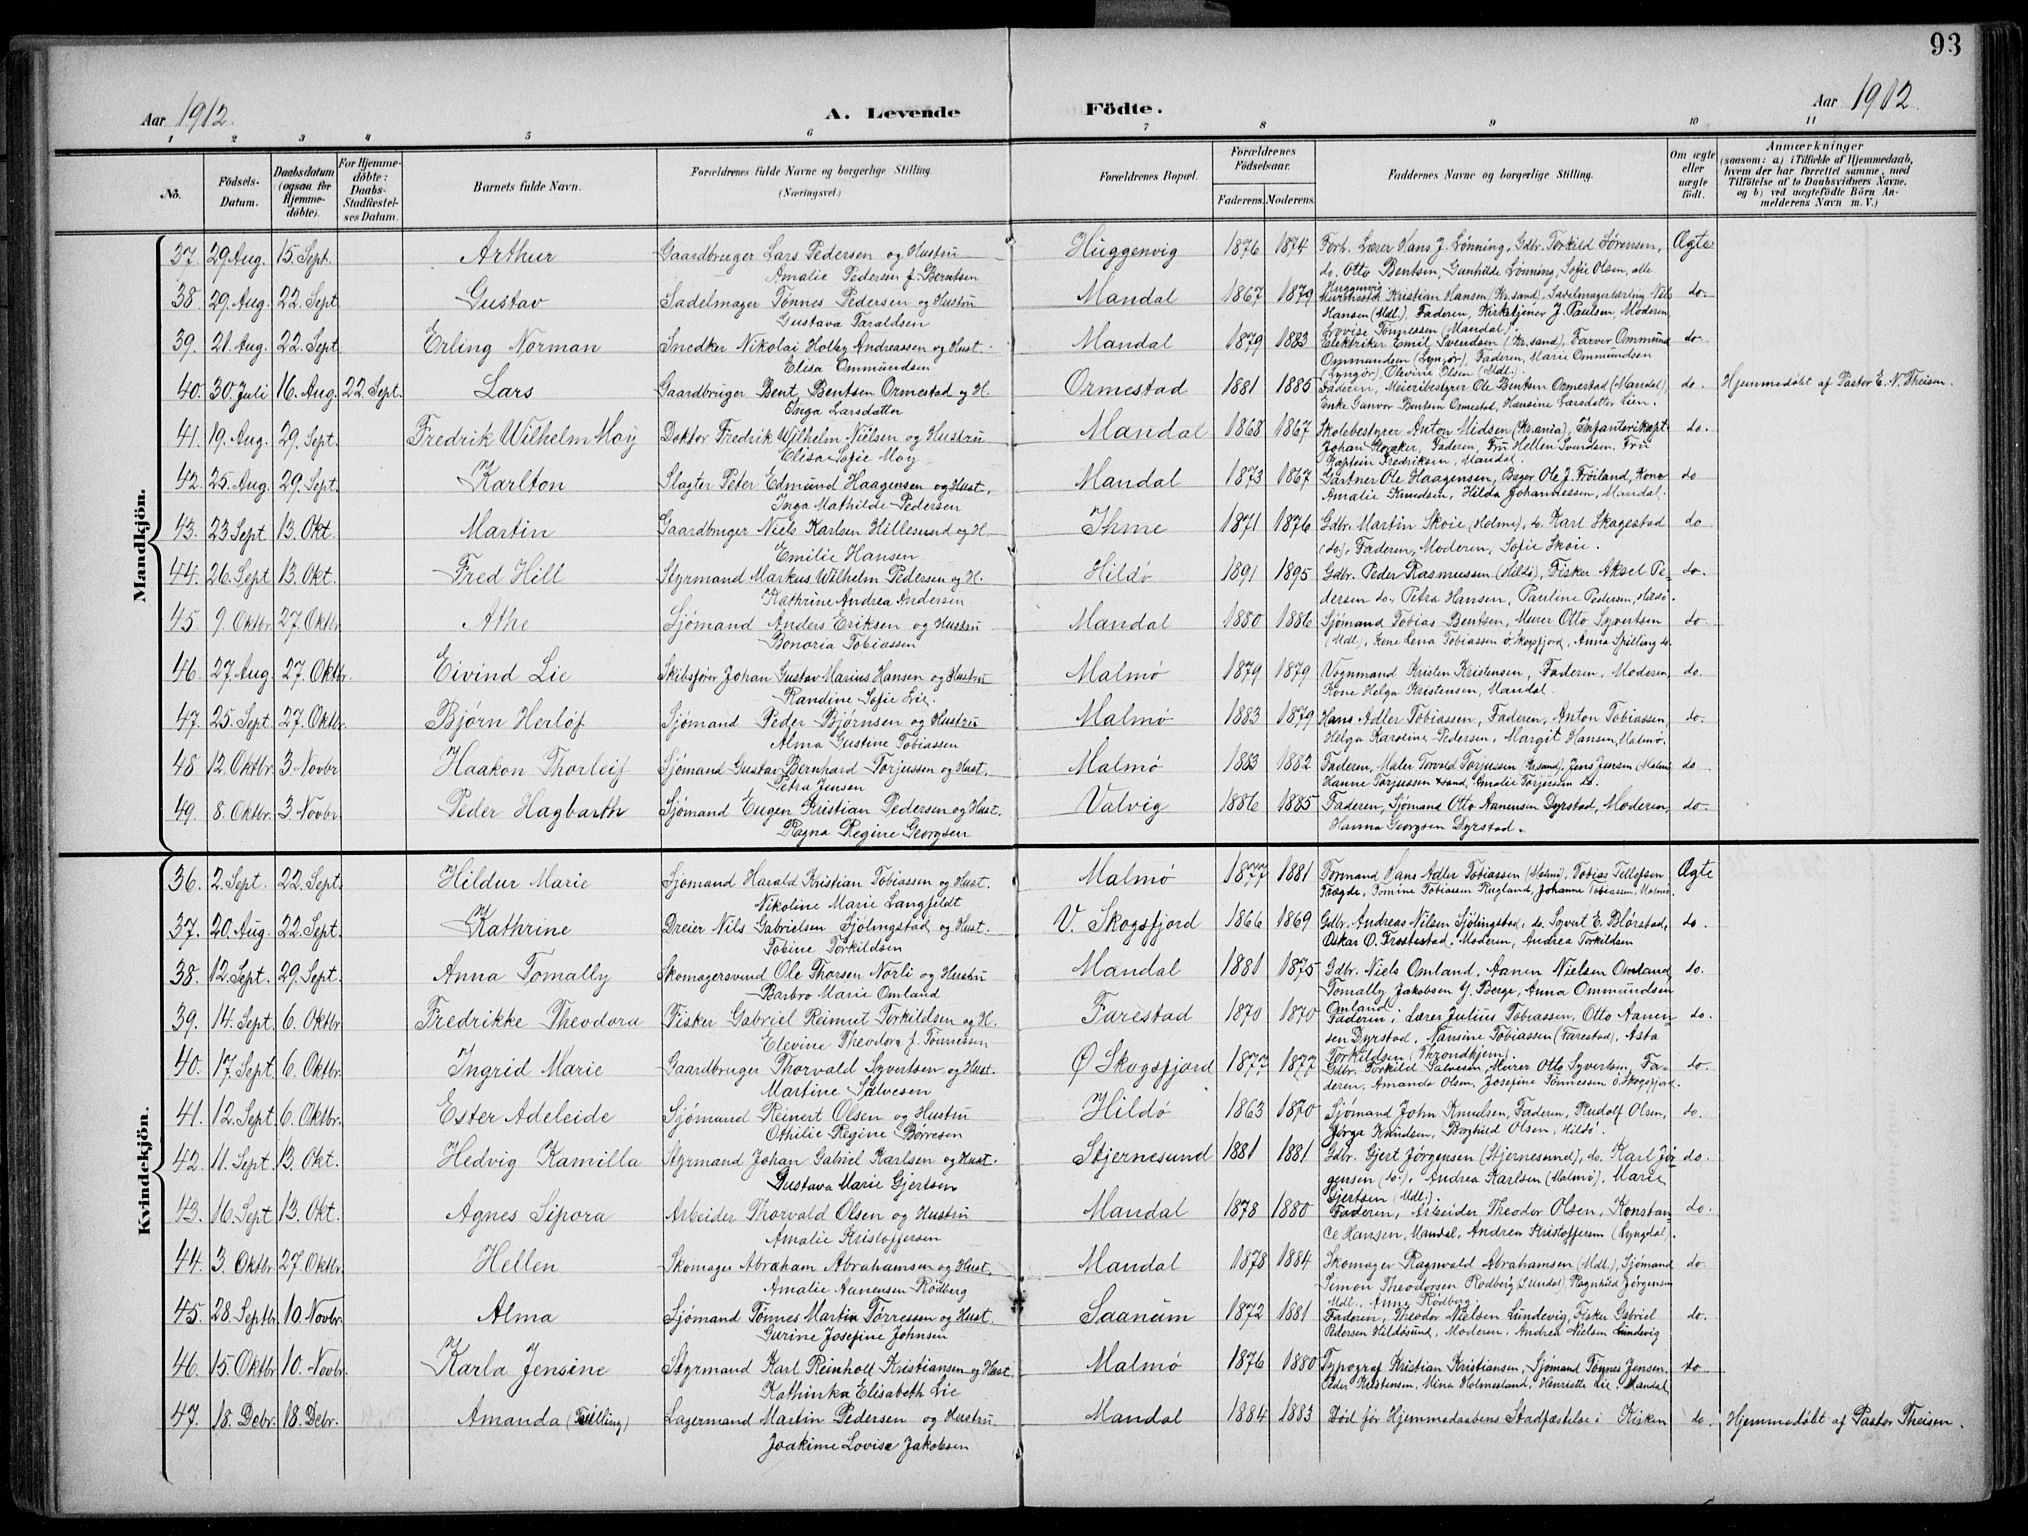 93
Aar 1912. A. Levende Födte. Aar 1912.
1 2 3 4 5 6 7 8 9 10 11
No. Födsels-Datum. Daabsdatum (ogsaa for Hjemme-döbte). For Hjemme-döbte: Daabs-Stadfæstel-ses Datum. Barnets fulde Navn. Forældrenes fulde Navne og borgerlige Stilling. (Næringsvei.) Forældrenes Bopæl. Forældrenes Födselsaar. Faderens. Moderens. Faddernes Navne og borgerlige Stilling. Om ægte eller uægte födt. Anmærkninger (saasom: a) i Tilfælde af Hjemmedaab, hvem der har forrettet samme, med Tilföielse af to Daabsvidners Navne, og b) ved uægtefödte Börn An-melderens Navn m. V.)
Mandkjön.
37. 29 Aug. 15. Sept. Arthur Gaardbruger Lars Pedersen og Hustru Huggenvig 1876 1874 Forh. Lærer Hans J. Lønning, Gdbr. Torkild Sørensen, Ægte
Amalie Pedersen f. Berntsen do. Otto Bentsen, Gunhilde Lønning, Sofie Olsen, alle
Huggenvig
38. 29. Aug. 22. Sept. Gustav Sadelmager Tønnes Pedersen og Hustru Mandal 1867 1879 Kristian Hansen (Kr.sand), Sadelmagerlærling Nils do.
Gustava Taraldsen Hansen (Mdl.), Faderen, Kirketjener J. Paulsen, Moderen
Lovise Tønnessen (Mandal)
39. 21. Aug. 22. Sept. Erling Norman Snedker Nikolai Holby Andreassen og Hust. Mandal 1879 1883 Elektriker Emil Svendsen (Kr.sand), Farver Ommund do
Elisa Ommundsen Ommundsen (Lyngør), Faderen, Marie Ommundsen
(Lyngör) Olevine Olsen (Mdl.)
40. 30. Juli 16. Aug. 22. Sept. Lars Gaardbruger Bent Bentsen Ormestad og H. Ormestad 1881 1885 Faderen, Meieribestyrer Ole Bentsen Ormestad (Mandal), do. Hjemmedøbt af Pastor E. N. Theisen.
Inga Larsdatter Enke Gunvor Bentsen Ormestad, Hansine Larsdatter Lien.
41. 19. Aug. 29. Sept. Fredrik Wilhelm Moy Doktor Fredrik Wilhelm Nielsen og Hustru Mandal 1868 1867 Skolebestyrer Anton Midsen (Kr.ania), Infanterikapt. do.
Elisa Sofie Moy Johan Faderen, Fru Hellen Svendsen, Fru
Kaptein Fredriksen, Mandal.
42. 25. Aug. 29. Sept. Karlton Slagter Peter Edmund Haagensen og Hust. Mandal 1873 1867 Gartner Ole Haagensen, Bager Ole J. Frøiland, Kone do
Inga Mathilde Pedersen Amalie Knudsen, Hilda Johannessen, Mandal.
43. 23 Sept. 13. Okt. Martin Gaardbruger Niels Karlsen Hillesund og H. Ihme 1871 1876 Gdbr. Martin Skoie (Holme), do. Karl Skagestad do
Emilie Hansen (do), Faderen, Moderen, Sofie Skoie.
44. 26. Sept 13. Okt. Fred Hill Styrmand Markus Wilhelm Pedersen og H. Hildø 1891 1895 Gdbr. Peder Rasmussen (Hildø), Fisker Aksel Pe- do.
Kathrine Andrea Andersen dersen do., Petra Hansen, Pauline Pedersen, Hildø.
45. 9. Oktbr. 27. Oktbr Athe Sjømand Anders Eriksen og Hustru Mandal 1880 1886 Sjømand Tobias Bentsen, Murer Otto Syvertsen do.
Bonoria Tobiassen (Mdl), Kone Lena Tobiassen Ø. Skogsfjord, Anna Spilling do.
46. 27 Aug. 27. Oktbr. Eivind Lie Skibsfører Johan Gustav Marius Hansen og Hustru Malmø 1879 1879 Vognmand Kristen Kristensen, Faderen, Moderen, do.
Randine Sofie Lie. Kone Helga Kristensen, Mandal.
47. 25. Sept. 27. Oktbr. Bjørn Herlöf Sjömand Peder Bjørnsen og Hustru Malmø 1883 1879 Hans Adler Tobiassen, Faderen, Anton Tobiassen, do.
Alma Gustine Tobiassen Helga Karoline Pedersen, Margit Hansen, Malmø.
48 12. Oktbr. 3. Novbr Haakon Thorleif Sjömand Gustav Bernhard Torjussen og Hust. Malmø 1883 1882 Faderen, Maler Torvald Torjussen (Kr.sand), Jens Jensen (Malmø do
Petra Jensen Hanne Torjussen Kr.sand, Amalie Torjussen do.
49. 8. Oktbr. 3. Novbr Peder Hagbarth Sjømand Eugen Kristian Pedersen og Hust. Valvig 1886 1885 Faderen, Sjømand Otto Aanensen Dyrstad, Moderen, do.
Ragna Regine Georgsen Hanna Georgsen Dyrstad.
Kvindekjön.
36. 2. Sept. 22. Sept. Hildur Marie Sjömand Harald Kristian Tobiassen og Hust. Malmø 1877 1881 Formand Hans Adler Tobiassen (Malmø), Tobias Tellefsen Ægte
Nikoline Marie Langfeldt Trægde, Tomine Tobiassen Rugland, Johanne Tobiassen, Malmø
37. 20 Aug. 22. Sept. Kathrine Dreier Nils Gabrielsen Sjölingstad og Hust. V. Skogsfjord 1866 1869 Gdbr. Andreas Nilsen Sjölingstad, do. Syvert E. Blørstad, do.
Tobine Torkildsen Oskar O. Frostestad, Moderen, Andrea Torkildsen
38. 12. Sept. 29. Sept. Anna Tomally Skomagersvend Ole Thorsen Nørli og Hustru Mandal 1881 1875 Gdbr. Niels Omland, Aanen Nielsen Omland do.
Barbro Marie Omland Tomally Jakobsen Y. Berge, Anna Ommundsen
Omland
39. 14. Sept. 6. Oktbr. Fredrikke Theodora Fisker Gabriel Reimut Torkildsen og H. Farestad 1870 1870 Faderen, Lærer Julius Tobiassen, Otto Aanen- do.
Elevine Theodora f. Tönnessen sen Dyrstad, Nansine Tobiassen (Farestad), Asta
Torkildsen (Throndhjem).
40. 17. Sept. 6. Oktbr. Ingrid Marie Gaardbruger Thorvald Syvertsen og Hust. Ø Skogsfjord 1877 1877 Gdbr. Torkild Salvesen, Murer Otto Syvertsen, Fa- do.
Martine Salvesen deren, Amanda Olsen, Josefine Tönnessen Ø. Skogsfjord.
41. 12. Sept. 6. Oktbr. Ester Adeleide Sjømand Reinert Olsen og Hustru Hildø 1863 1870 Sjömand John Knudsen, Faderen, Rudolf Olsen, do.
Othilie Regine Børresen Jørga Knudsen, Borghild Olsen, Hildø.
42. 11. Sept. 13. Okt. Hedvig Kamilla Styrmand Johan Gabriel Karlsen og Hust. Stjernesund 1881 1881 Gdbr. Gjert Jörgensen (Stjernesund), do. Karl Jör- do.
Gustava Marie Gjertsen gensen (do.), Andrea Karlsen (Malmø), Marie
Gjertsen (Mdl.).
43. 16. Sept. 13. Okt. Agnes Sipora Arbeider Thorvald Olsen og Hustru Mandal 1878 1880 Faderen, Arbeider Theodor Olsen, Konstan- do.
Amalie Kristoffersen ce Hansen, Mandal, Andrea Kristoffersen (Lyngdal).
44. 3. Oktbr. 27 Oktbr. Hellen Skomager Abraham Abrahamsen og Hust. Mandal 1878 1884 Skomager Ragnvald Abrahamsen (Mdl.), Sjömand do.
Amalie Aanensen Rödberg Simon Theodorsen Rödberg (S.Undal), Ragnhild Jørgensen
Mdl., Anna Rødberg.
45. 28. Septbr 10. Novbr. Alma Sjömand Tönnes Martin Törressen og Hust. Saanum 1872 1881 Faderen, Theodor Nielsen Lundevig, Fisker Gabriel do.
Gurine Josefine Johnsen Pedersen Hildøsund, Moderen, Andrea Nielsen Lundevig
46. 15. Oktbr. 10. Novbr. Karla Jensine Styrmand Karl Reinholt Kristiansen og Hust. Malmø 1876 1880 Typograf Kristian Kristiansen, Sjömand Tönnes Jensen, do.
Kathinka Elisabeth Lie Peder Kristensen, Mina Holmesland, Henriette Lie, Mandal
47. 18. Debr. 18. Debr. Amanda (Tvilling) Lagermand Martin Pedersen og Hustru Mandal 1884 1883 Död før Hjemmedaabens Stadfæstelse i Kirken do. Hjemmedöbt af Pastor Theisen.
Joakime Lovise Jakobsen